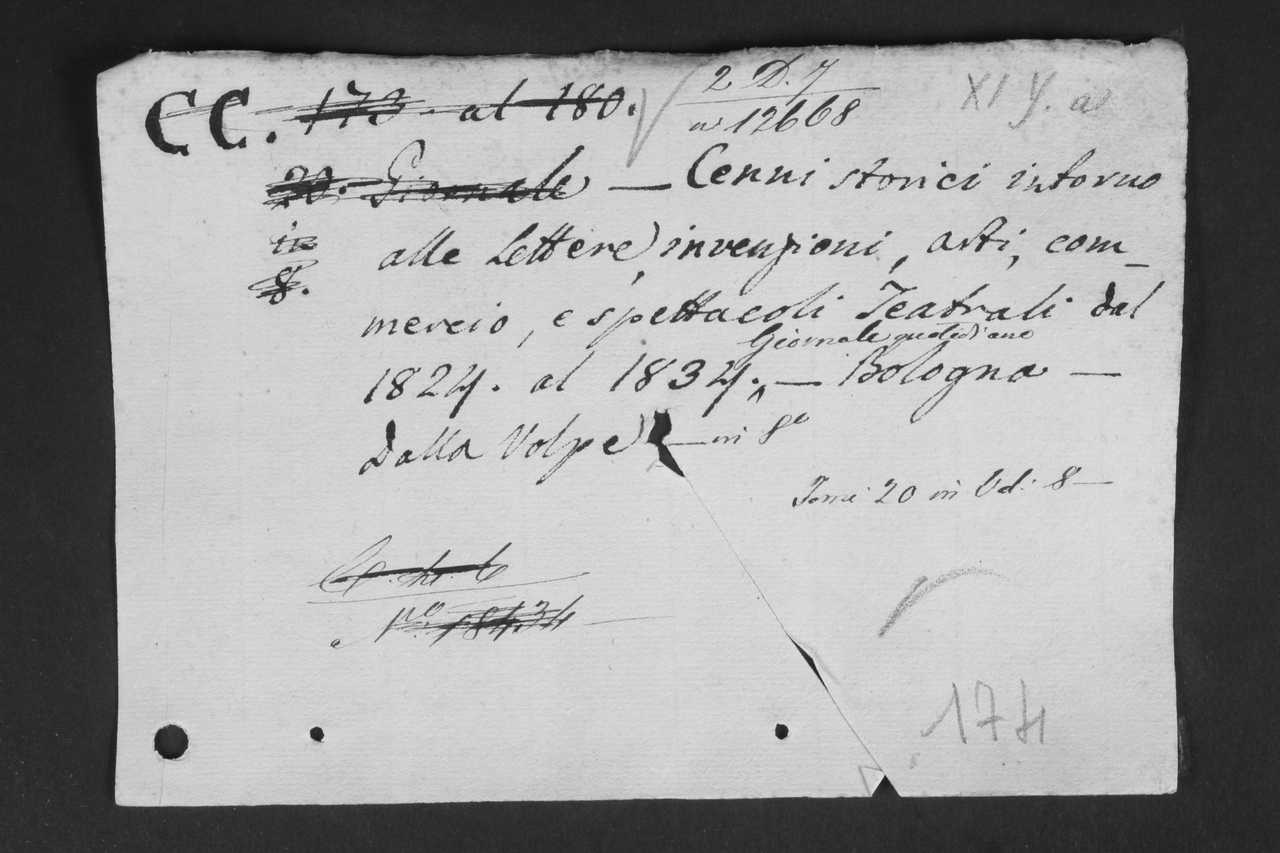 CC. 173. al 180.
2 D. 7
n 12668
XI Y. a
20. Giornale — Cenni storici intorno
in
8.
alle Lettere, invenzioni, arti, com-
mercio, e spettacoli Teatrali dal
Giornale quotidiano
1824. al 1834. — Bologna —
Dalla Volpe — in 8°
Tomi 20 in Vol: 8 —
N.° 18434
174